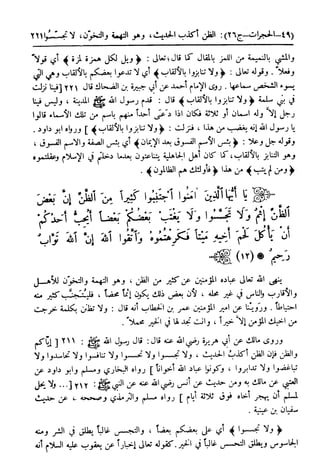 (٤٩-الحجرات-ج٢٦): الظن أكذب الحديث، وهو التهمة والتخون، لا تجسسوا ٢٢١
والمشي بالنميمة من اللمز بالمقال كما قال تعالى: ﴿ويل لكل همزة لمزة﴾ أي قولا
وفعلا. وقوله تعالى: ﴿ولا تنابزوا بالألقاب﴾ أي لا تدعوا بعضكم بالألقاب وهي التي
يسوء الشخص سماعها. روى الإمام أحمد عن أبي جبيرة بن الضحاك قال ٢٢١ [فينا نزلت
في بني سلمة ﴿ولا تنابزوا بالألقاب﴾ قال: قدم رسول الله ﷺ المدينة، وليس فينا
رجل إلا وله اسمان أو ثلاثة فكان إذا دعى أحدا منهم باسم من تلك الأسماء قالوا
يا رسول الله إنه يغضب من هذا، فنزلت: ﴿ولا تنابزوا بالألقاب﴾] ورواه ابو داود.
وقوله جل وعلا: ﴿بئس الاسم الفسوق بعد الإيمان﴾ أي بئس الصفة والاسم الفسوق،
وهو التنابز بالألقاب، كما كان أهل الجاهلية يتناعتون بعدما دخلتم في الإسلام وعقلتموه
﴿ومن لم يتب﴾ من هذا ﴿فأولئك هم الظالمون﴾.
يَا أَيُّهَا الَّذِينَ آمَنُوا اجْتَنِبُوا كَثِيرًا مِنَ الظَّنِّ إِنَّ بَعْضَ
الظَّنِّ إِثْمٌ وَلَا تَجَسَّسُوا وَلَا يَغْتَب بَّعْضُكُم بَعْضًا أَيُحِبُّ أَحَدُكُمْ
أَن يَأْكُلَ لَحْمَ أَخِيهِ مَيْتًا فَكَرِهْتُمُوهُ وَاتَّقُوا اللَّهَ إِنَّ اللَّهَ تَوَّابٌ
رَحِيمٌ * (١٢)
ينهى الله تعالى عباده المؤمنين عن كثير من الظن، وهو التهمة والتخون للأهل
والأقارب والناس في غير محله، لأن بعض ذلك يكون إثما محضا، فليتجنب كثير منه
احتياطا. وروينا عن امير المؤمنين عمر بن الخطاب أنه قال: ولا تظنن بكلمة خرجت
من اخيك المؤمن إلا خيرا، وانت تجد لها في الخير محملا.
وروى مالك عن أبي هريرة رضي الله عنه قال: قال رسول الله ﷺ: ٢١١ [إياكم
والظن فإن الظن أكذب الحديث، ولا تجسسوا ولا تحسسوا ولا تنافسوا ولا تحاسدوا ولا
تباغضوا ولا تدابروا، وكونوا عباد الله أخوانا] رواه البخاري ومسلم وابو داود عن
العتبي عن مالك به ومن حديث عن أنس رضي الله عنه عن النبي ﷺ: ٢١٢ [... ولا يحل
لمسلم أن يهجر أخاه فوق ثلاثة أيام] رواه مسلم والترمذي وصححه، عن حديث
سفيان بن عيينة.
﴿ولا تجسسوا﴾ أي على بعضكم بعضا، والتجسس غالبا يطلق في الشر ومنه
الجاسوس ويطلق التحسس غالبا في الخير. كقوله تعالى إخبارا عن يعقوب عليه السلام أنه